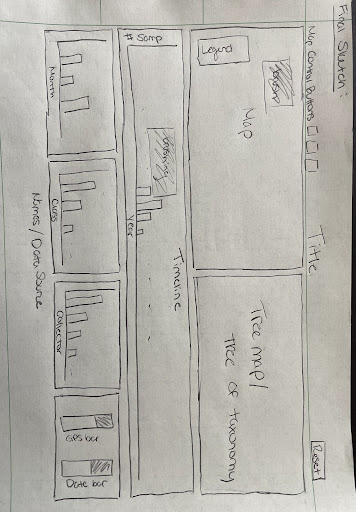 Final Sketch:
Map Control Buttons
Title
Reset
Map
Legend
Tree map/
Tree of taxonomy
Timeline
brushing
# Samp
Year
Month
Class
Collector
GPS bar
Date bar
Names/Data Source